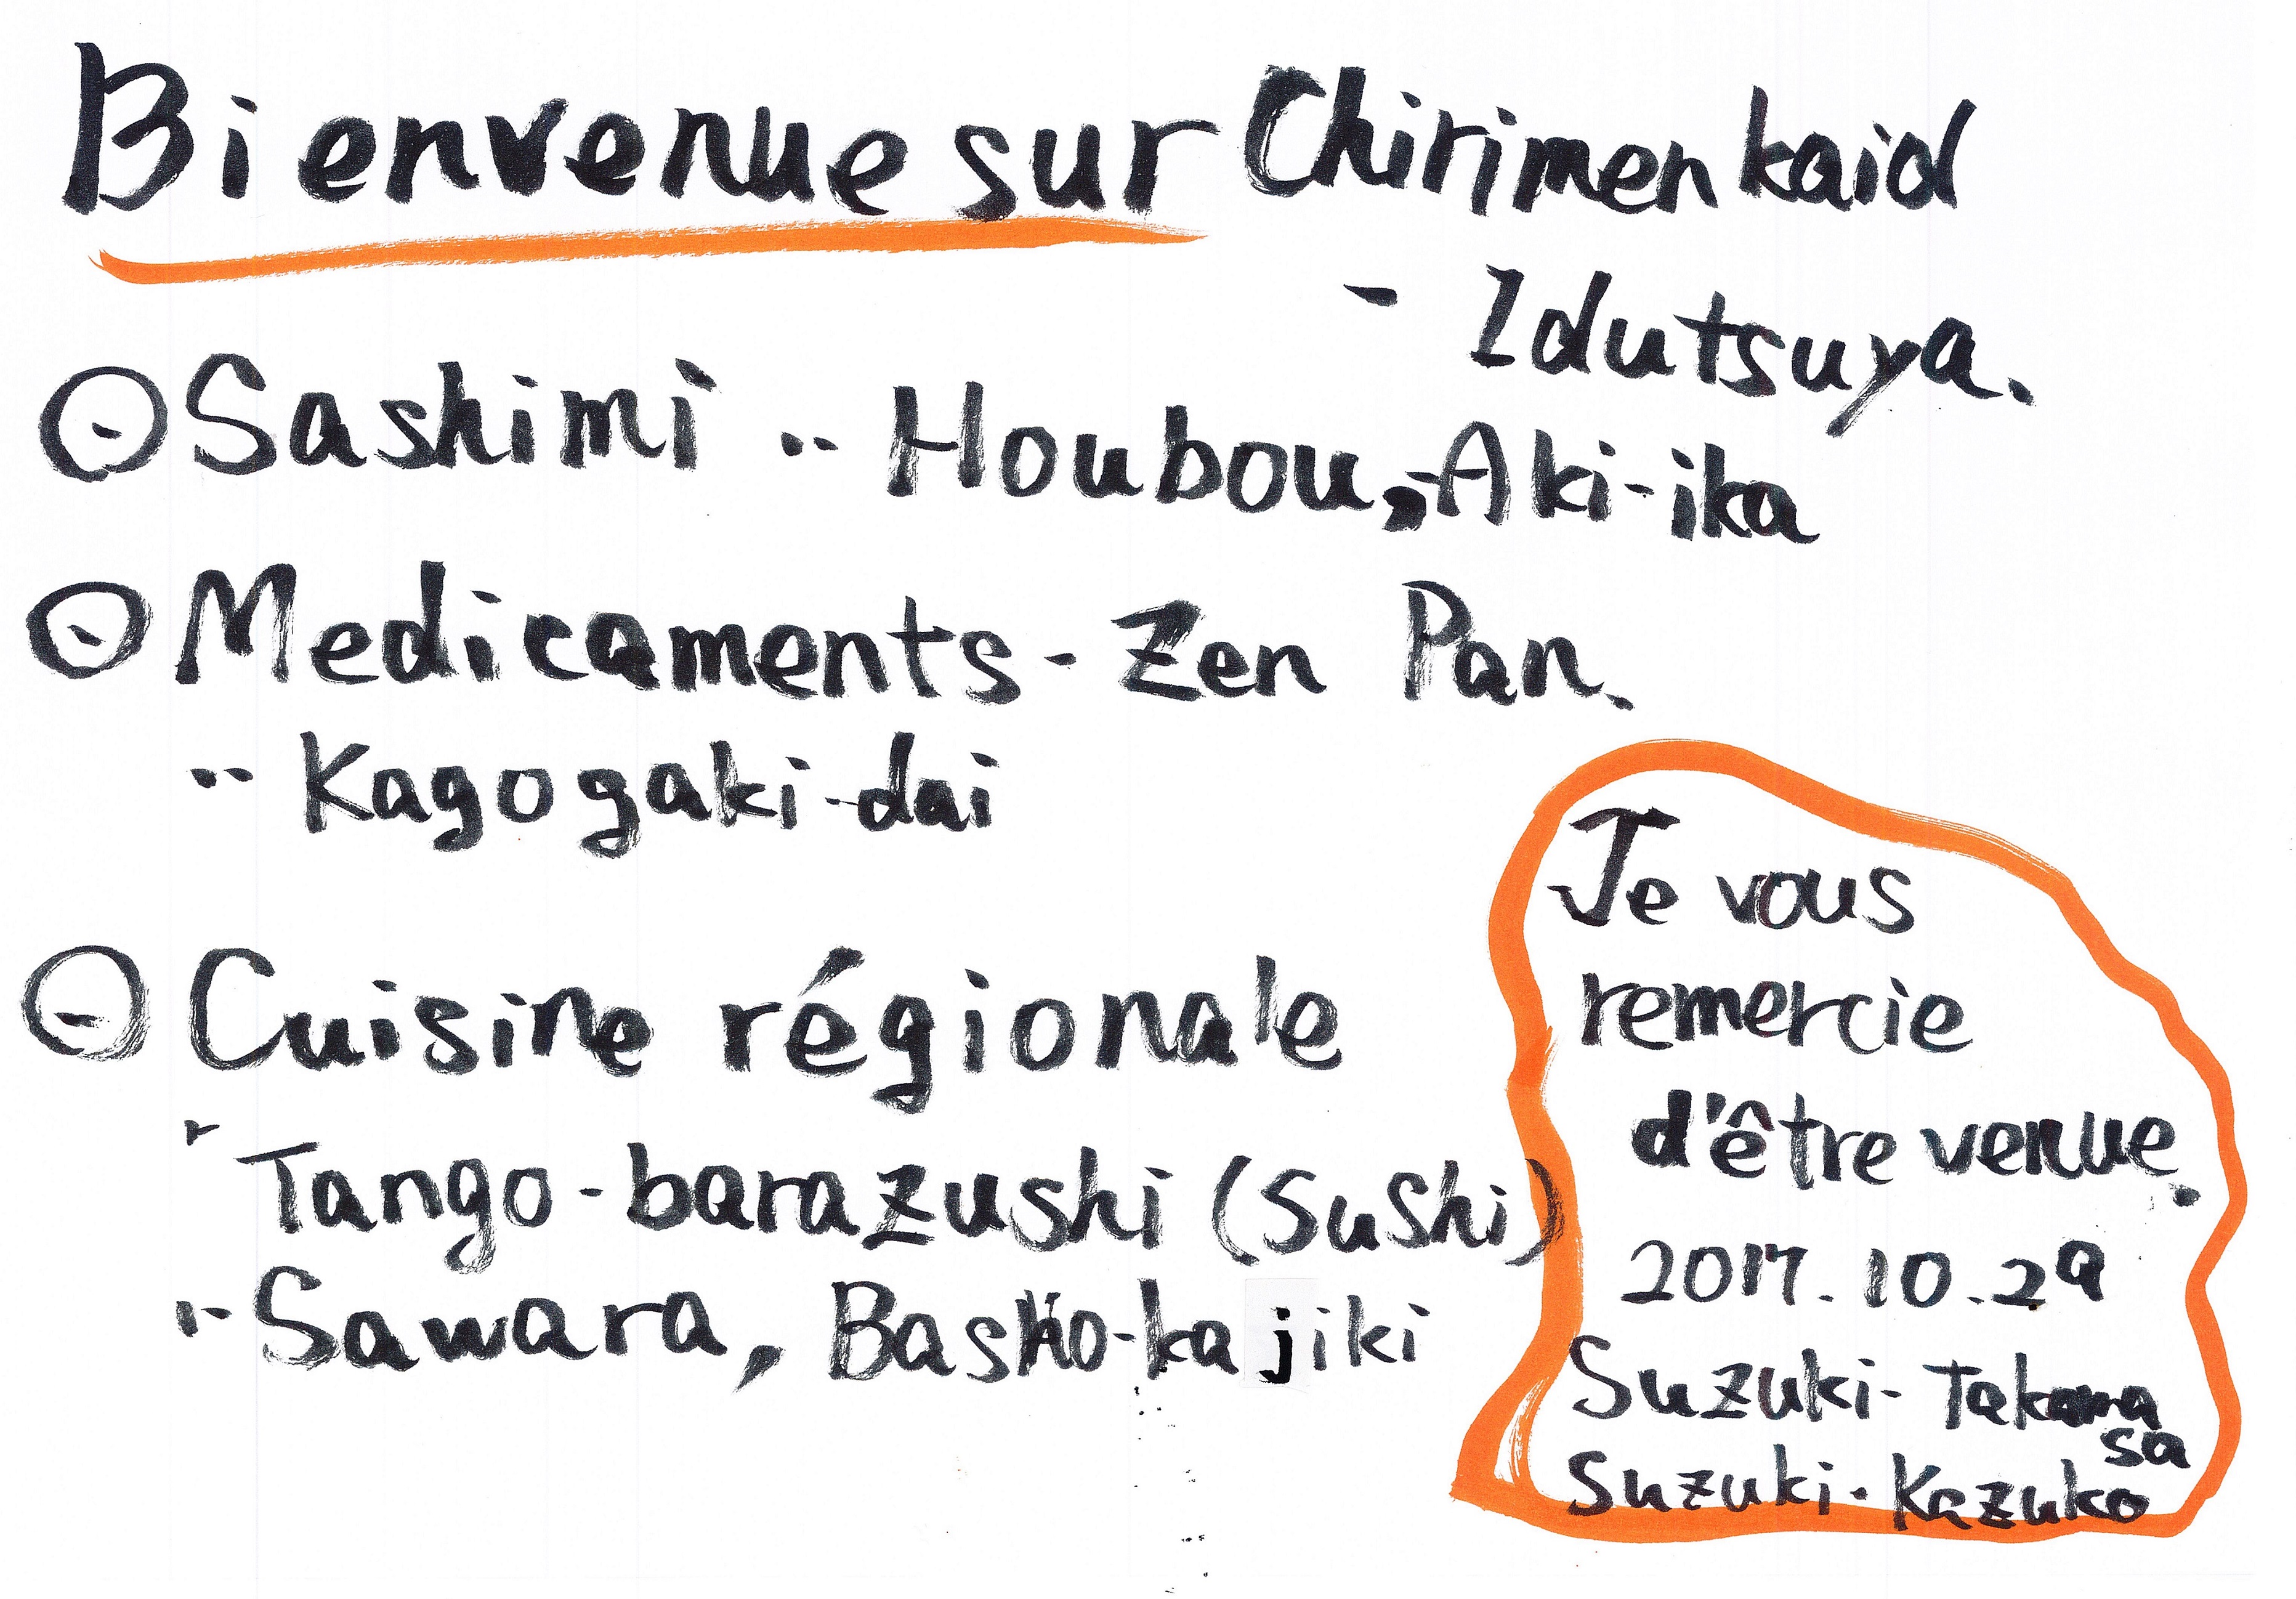 Bienvenue sur Chirimen kaido
- Idutsuya.
⊙ Sashimi ‥ Houbou, Aki-ika
⊙ Medicaments - Zen Pan.
‥ Kagogaki-dai
⊙ Cuisine régionale
‥ Tango-barazushi (Sushi)
‥ Sawara, Basho-kajiki
Je vous
remercie
d'être venue.
2017.10.29
Suzuki-Takama
sa
Suzuki-Kazuko